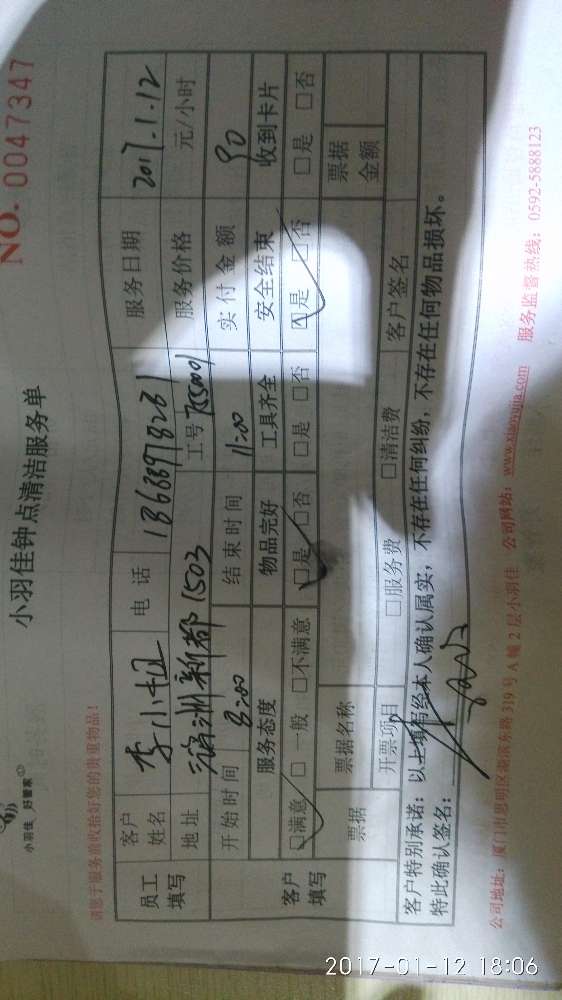 小羽佳 好管家
小羽佳钟点清洁服务单
NO. 0047347
请您于服务前收拾好您的贵重物品!
员工填写 客户姓名 李小姐 电话 18688918231 服务日期 2017.1.12
地址 滨洲新都1503 工号 服务价格 元/小时
开始时间 8:00 结束时间 11:00 实付金额 90
客户填写 服务态度 物品完好 工具齐全 安全结束 收到卡片
□满意 □一般 □不满意 □是 □否 □是 □否 □是 □否 □是 □否
票据 票据名称 票据金额
开票项目 □服务费 □清洁费 客户签名
客户特别承诺:以上填写经本人确认属实,不存在任何纠纷,不存在任何物品损坏。
特此确认签名:
公司地址:厦门市思明区湖滨东路319号A幢2层小羽佳 公司网站:www.xiaoyujia.com 服务监督热线:0592-5888123
2017-01-12 18:06